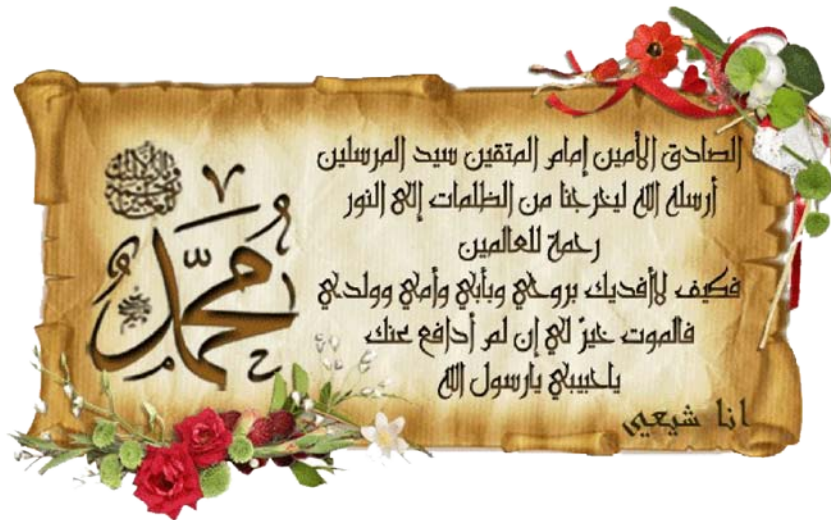 الصادق الأمين إمام المتقين سيد المرسلين
أرسله الله ليخرجنا من الظلمات إلى النور
رحمة للعالمين
فكيف لأفديك بروحي وبأبي وأمي وولدي
فالموت خيرٌ لي إن لم أدافع عنك
ياحبيبي يارسول الله
انا شيعي
وما أرسلناك إلا رحمة للعالمين
مُحَمَّدٌ